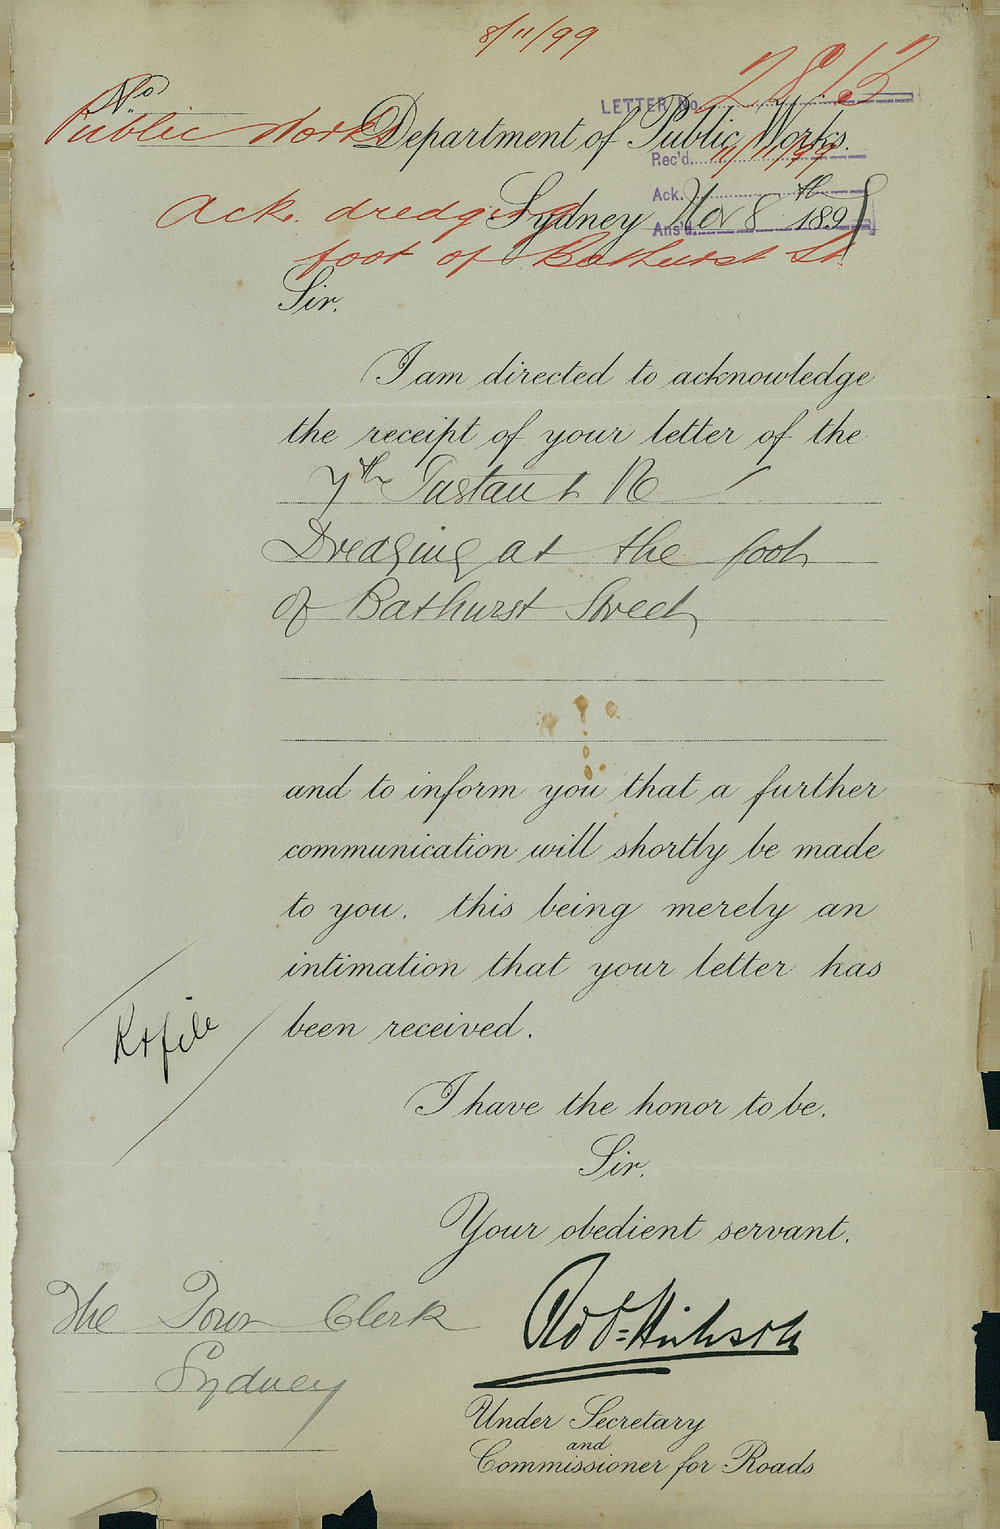 8/11/99
No.
LETTER No. 2813
Public Works
Department of Public Works.
Rec'd. 11/11/99
Ack.
Ack. dredging
Sydney Nov 8th 1899
Ans'd.
foot of Bathurst St.
Sir.
I am directed to acknowledge
the receipt of your letter of the
7th Instant Re
Dredging at the foot
of Bathurst Street
and to inform you that a further
communication will shortly be made
to you. this being merely an
intimation that your letter has
been received.
file
I have the honor to be.
Sir.
Your obedient servant.
The Town Clerk
Robt Hickson
Sydney
Under Secretary
and
Commissioner for Roads